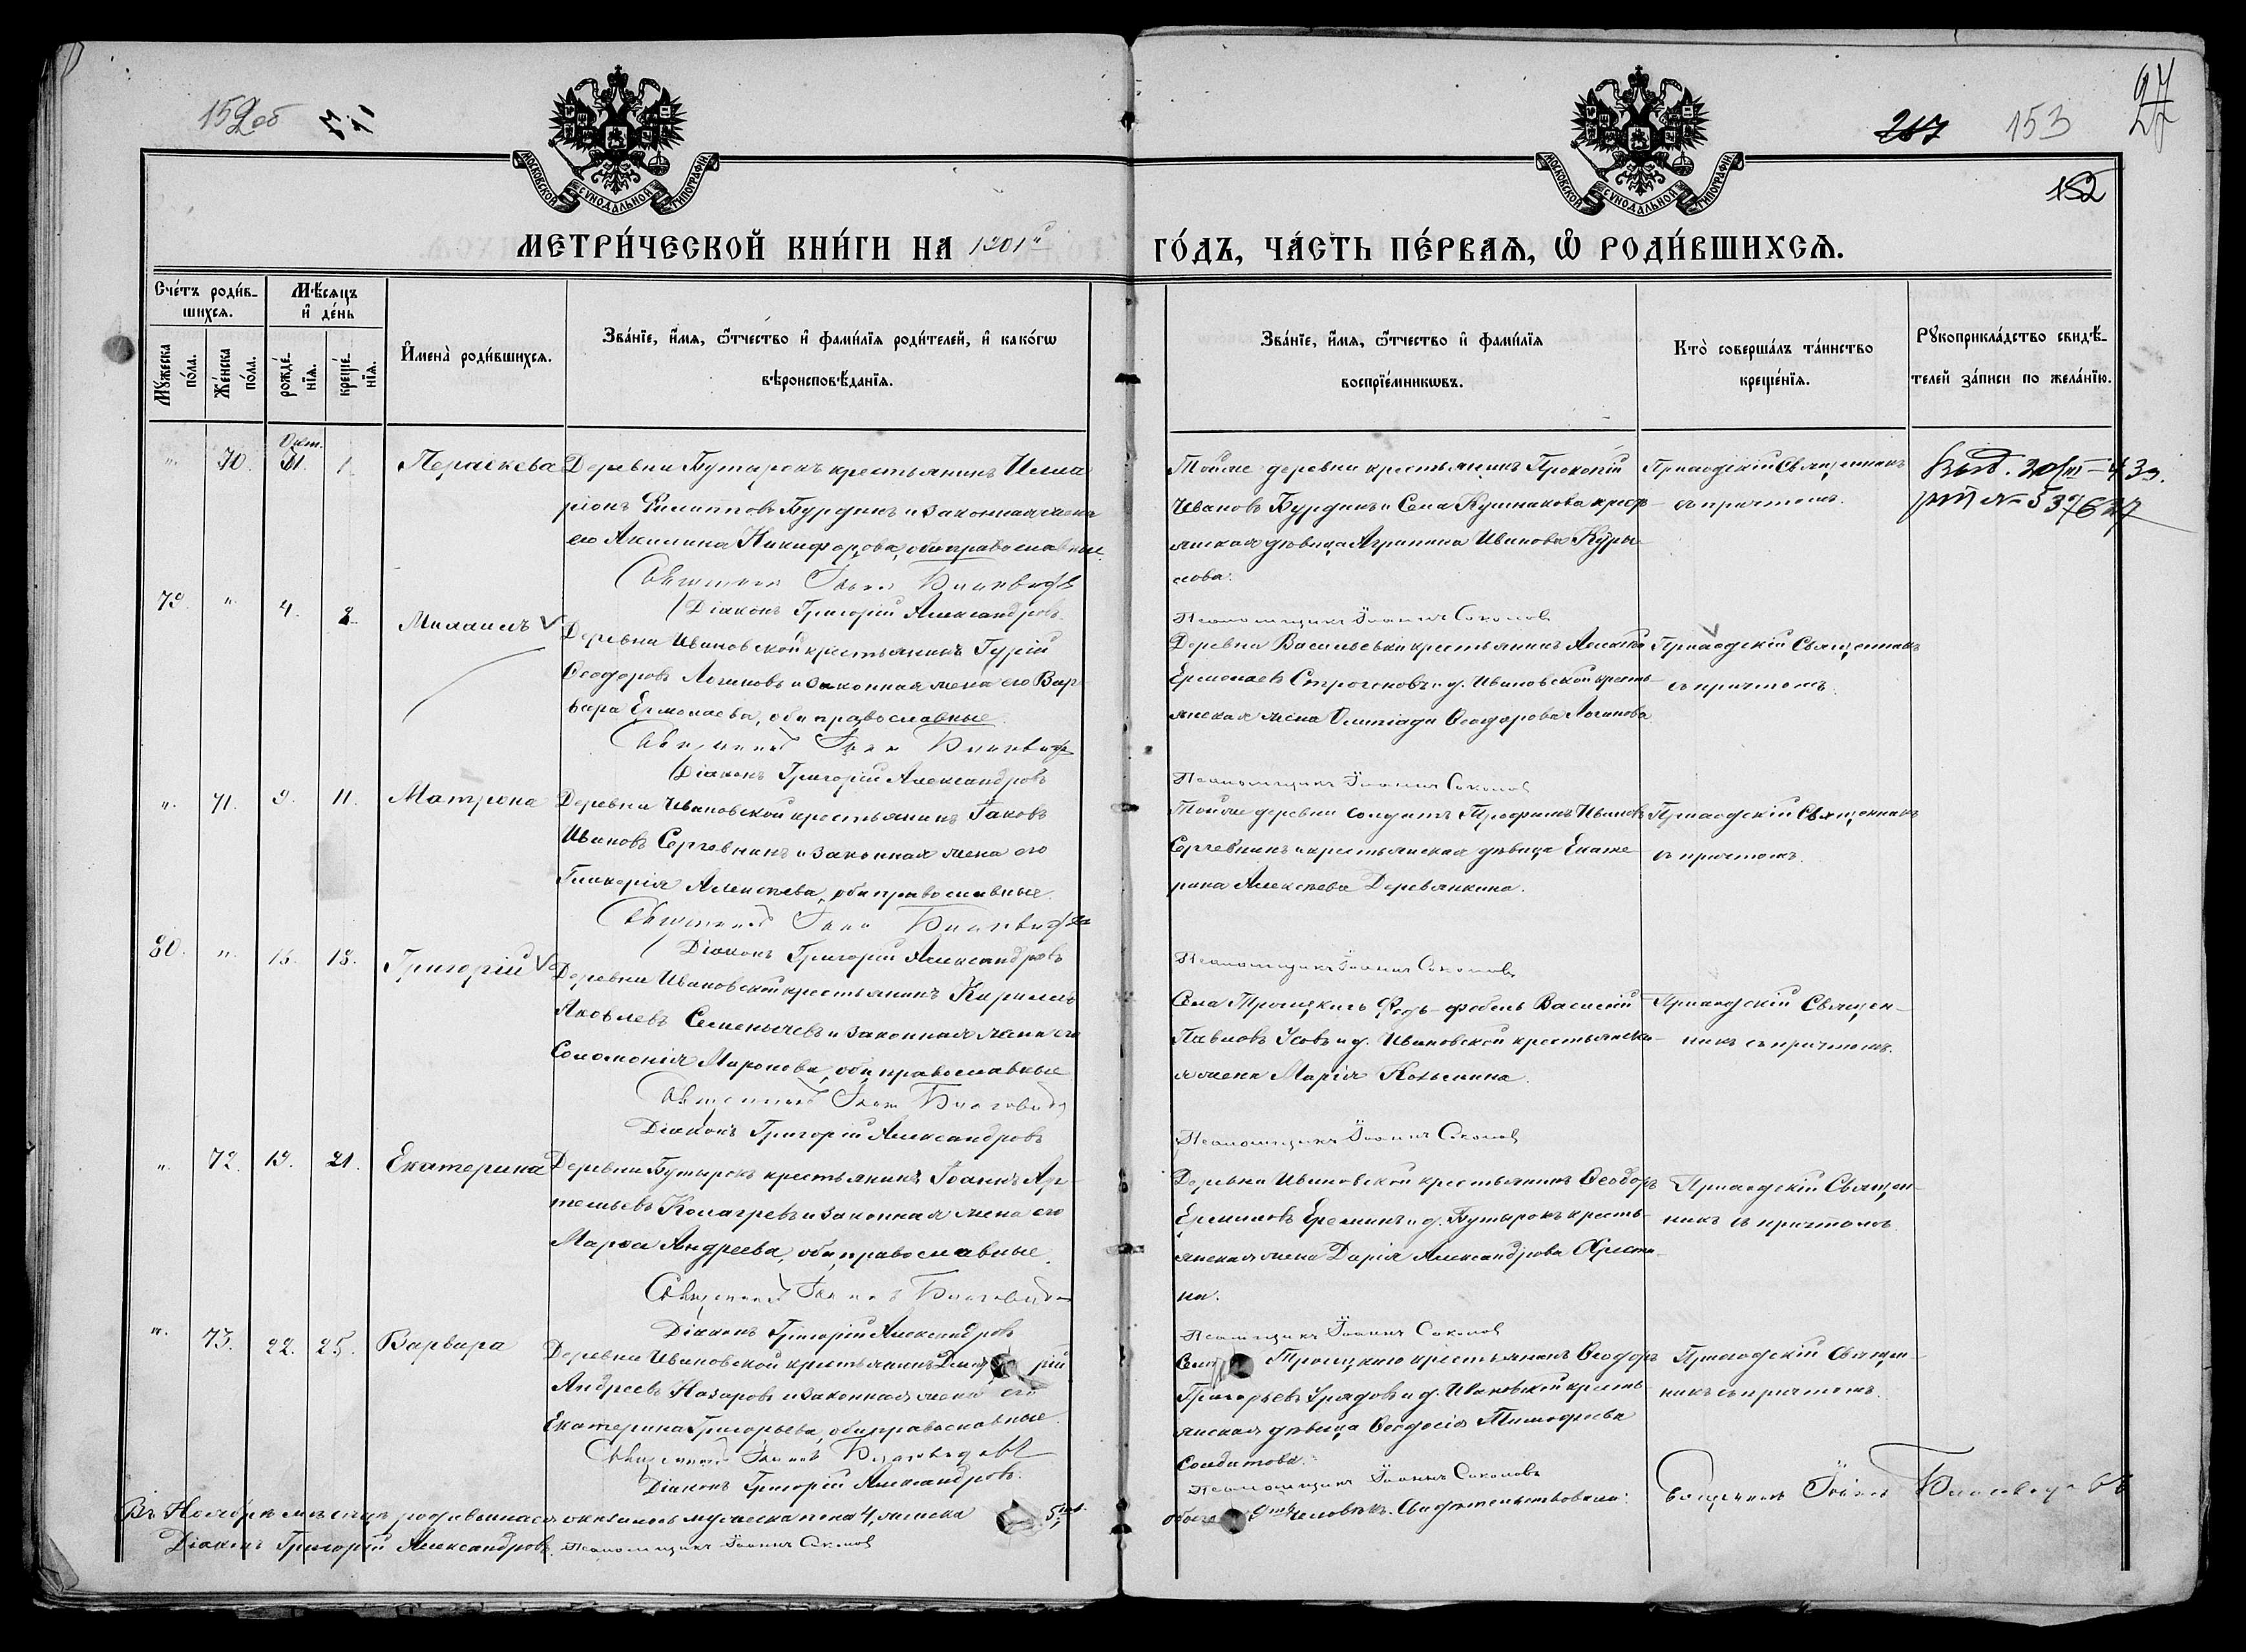 152об
153
27
217
152
МОСКОВСКОЙ СѴНОДАЛЬНОЙ ТИПОГРАФІИ
МОСКОВСКОЙ СѴНОДАЛЬНОЙ ТИПОГРАФІИ
МЕТРИ́ЧЕСКОЙ КНИ́ГИ НА 1901й ГО́ДЪ, ЧА́СТЬ ПЕ́РВАѦ, Ѡ҆ РОДИ́ВШИХСѦ.
Сче́тъ роди́вшихсѧ.
Мꙋ́жеска по́ла.
Же́нска по́ла.
Мѣ́сѧцъ и҆ де́нь
рожде́нїѧ.
креще́нїѧ.
И҆мена̀ роди́вшихсѧ.
Зва́нїе, и҆́мѧ, ѻ҆́тчество и҆ фами́лїѧ роди́телей, и҆ како́гѡ
вѣроисповѣ́данїѧ.
Зва́нїе, и҆́мѧ, ѻ҆́тчество и҆ фами́лїѧ
воспрїе́мникѡвъ.
Кто̀ соверша́лъ та́инство
креще́нїѧ.
Рꙋкоприкла́дство свидѣ́-
телей за́писи по жела́нїю.
" 70. Окт. 31. 1. Параскева
Деревни Бутырокъ крестьянинъ Илла
ріонъ Филипповъ Бурдинъ и законная жена
его Акилина Никифорова, оба православные.
Священникъ Іоаннъ Благовидовъ
Діаконъ Григорій Александровъ
Той же деревни крестьянинъ Прокопій
Ивановъ Бурдинъ и села Кушникова кресть-
янская дѣвица Агрипина Иванова Куры-
лова.
Псаломщикъ Іоаннъ Соколовъ
Приходскій Священникъ
съ причтомъ.
79. " 4. 8. Михаилъ
Деревни Ивановской крестьянинъ Гурій
Ѳеодоровъ Логиновъ и законная жена его Вар
вара Ермолаева, оба православные.
Священникъ Іоаннъ Благовидовъ
Діаконъ Григорій Александровъ
Деревни Васильевки крестьянинъ
Ермолаевъ Строгоновъ и д. Ивановской кресть-
янская жена Олимпіада Ѳеодорова Логинова
Псаломщикъ Іоаннъ Соколовъ
Приходскій Священникъ
съ причтомъ.
" 71. 9. 11. Матрона
Деревни Ивановской крестьянинъ Іаковъ
Ивановъ Сергевнинъ и законная жена его
Гликерія Алексѣева, оба православные.
Священникъ Іоаннъ Благовидовъ
Діаконъ Григорій Александровъ
Той же деревни солдатъ Трофимъ Ивановъ
Сергевнинъ и крестьянская дѣвица Екате
рина Алексѣева Деревянкина.
Псаломщикъ Іоаннъ Соколовъ
Приходскій Священникъ
съ причтомъ.
80. " 15. 18. Григорій
Деревни Ивановской крестьянинъ Кириллъ
Яковлевъ Семенычевъ и законная жена его
Соломонія Миронова, оба православные
Священникъ Іоаннъ Благовидовъ
Діаконъ Григорій Александровъ
Села Троицкись Василій
Павловъ Усовъ и д. Ивановской крестьянска-
я жена Марія Козьмина.
Псаломщикъ Іоаннъ Соколовъ
Приходскій Священ-
никъ съ причтомъ.
" 72. 19. 21. Екатерина
Деревни Бутырокъ крестьянинъ Іоаннъ Ар-
темьевъ и законная жена его
Марѳа Андреева, оба православные.
Священникъ Іоаннъ Благовидовъ
Діаконъ Григорій Александровъ
Деревни Ивановской крестьянинъ Ѳеодоръ
Ермиловъ Ереминъ и д. Бутырокъ кресть-
янская жена Дарія Александрова Хрести-
на.
Псаломщикъ Іоаннъ Соколовъ
Приходскій Священ-
никъ съ причтомъ
" 73. 22. 25. Варвара
Деревни Ивановской крестьянинъ
Андреевъ Назаровъ и законная жена его
Екатерина Григорьева, оба православные.
Священникъ Іоаннъ Благовидовъ
Діаконъ Григорій Александровъ.
Села Троицкаго крестьянинъ Ѳеодоръ
Григорьевъ Урядовъ и д. Ивановской кресть-
янская дѣвица Ѳеодосія Тимофеева
Солдатова.
Псаломщикъ Іоаннъ Соколовъ
Приходскій Священ-
никъ съ причтомъ.
Въ Ноябрѣ мѣсяцѣ родившихся оказалось мужеска пола 4, женска 5,
обоего 9ть человѣкъ. Свидѣтельствовали: Священникъ Іоаннъ Благовидовъ
Діаконъ Григорій Александровъ. Псаломщикъ Іоаннъ Соколовъ